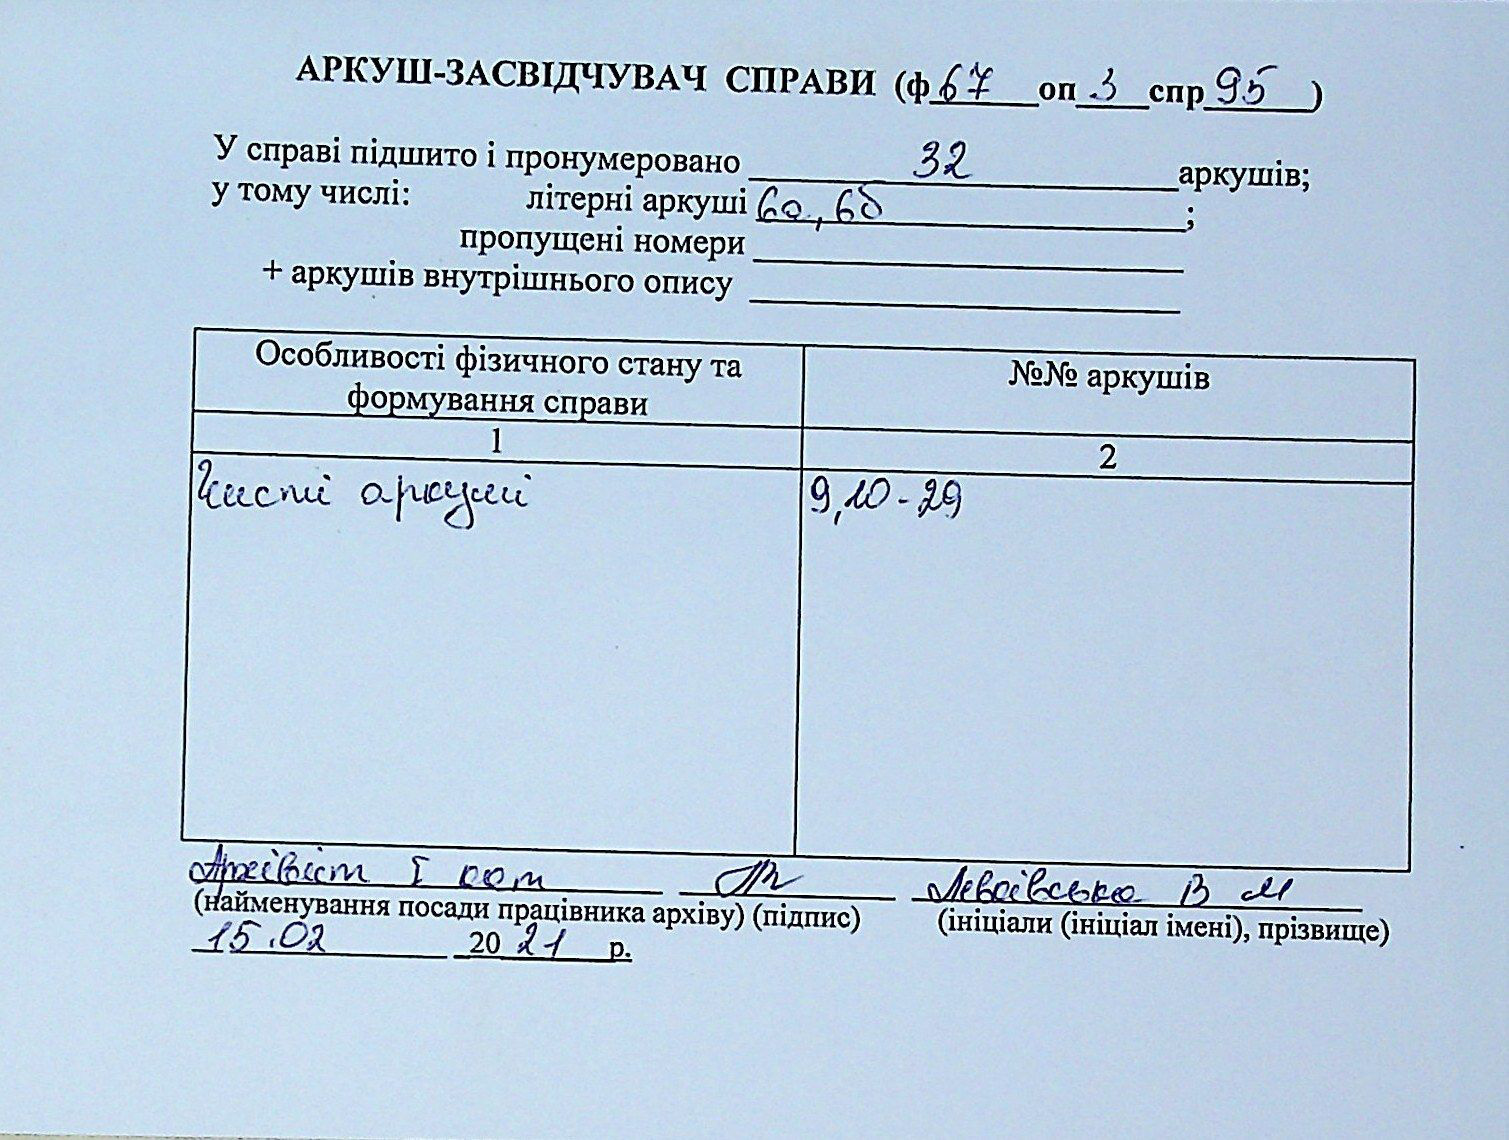 АРКУШ-ЗАСВІДЧУВАЧ СПРАВИ (ф 67 оп 3 спр 95 )
У справі підшито і пронумеровано 32 аркушів;
у тому числі: літерні аркуші 6а, 6б ;
пропущені номери
+ аркушів внутрішнього опису
Особливості фізичного стану та формування справи
№№ аркушів
1
2
Чисті аркуші
9, 10 - 29
Архівіст І кат В М
(найменування посади працівника архіву) (підпис) (ініціали (ініціал імені), прізвище)
15.02 20 21 р.